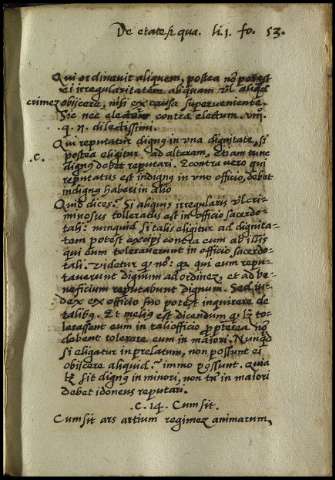 De etate & qua. li. 1. fo. 53.
Qui ordinavit aliquem, postea nõ potest
ei irregularitatem aliquam vl̃ aliqd
crimen obijcere, nisi ex causa superveniente.
Sic nec elector contra electum. viij.
q. ij. dilectissimi.
.C. Qui reputatur dignꝰ in vna dignitate, si
postea eligitur ad alteram, etiam tunc
dignꝰ debet reputari. Et contra vero qui
reputatus est indignꝰ in vno officio, debet
indignꝰ haberi in alio
Quid dices? Si aliquis irregularis vl̃ cri-
minosus toleratus est in officio sacerdo-
tali: nunquid si talis eligitur ad dignita-
tem potest excipi contra eum ab illis
qui eum toleraverunt in officio sacerdo-
tali. Videtur qꝰ nõ: qa qui eum repu-
taverunt dignum ad ordinẽ, et ad be-
neficium reputabunt dignum. Sed iu-
dex ex officio suo potest inquirere de
talibꝰ. Et meliꝰ est dicendum qꝰ lꝫ to-
lerassent eum in tali officio, propterea nõ
debent tolerare eum in maiori. Nunqd
si eligatur in prelatum, non possunt ei
obijcere aliquid? immo possunt. Quia
lꝫ sit dignꝰ in minori, non tñ in maiori
debet idoneus reputari.
.C. 14. Cum sit.
Cum sit ars artium regimen animarum,